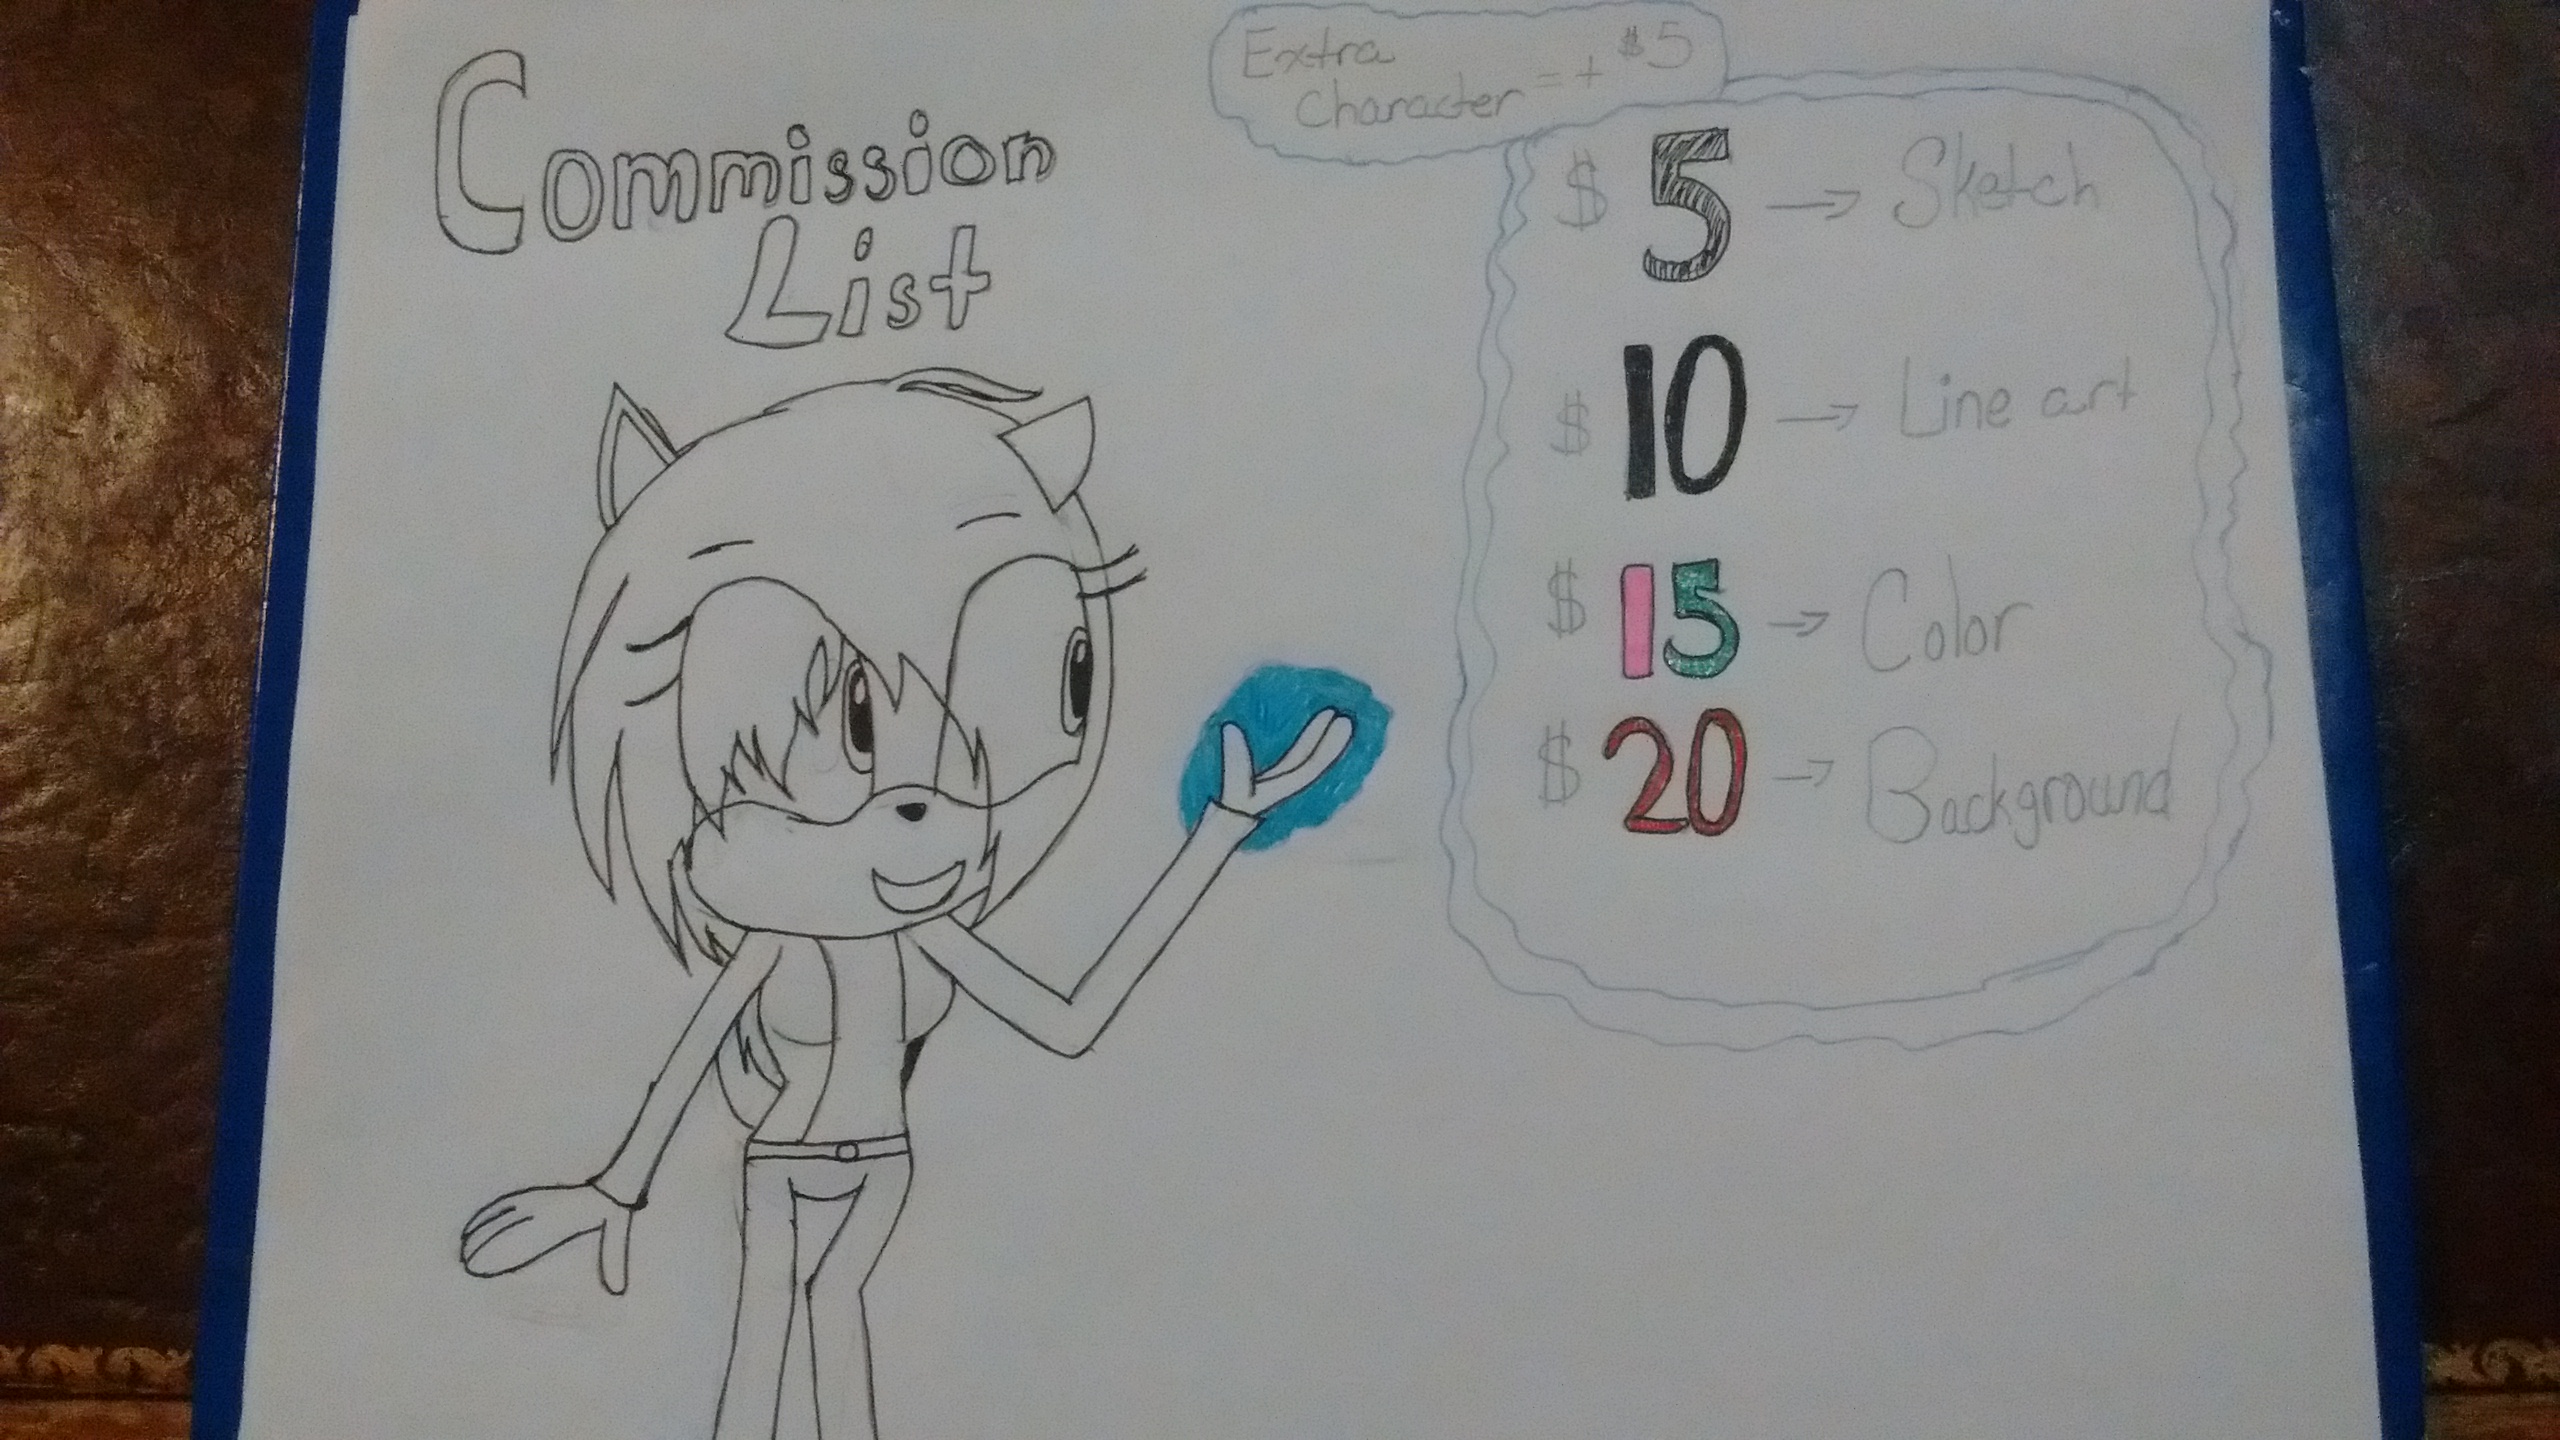 Commission
List
Extra
Character = + $5
$ 5 → Sketch
$ 10 → Line art
$ 15 → Color
$ 20 → Background